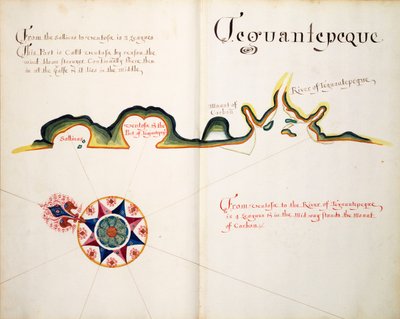 From the Salinas to ventosse is 3 Leagues.
This Port is Call'd ventosse by reason the
wind blows stronger Continually there, then
in all the Gulfe & it lies in the middle,
Tequantepeque
River of Tequantepeque
Mount of
Carbon
Salinas
ventosse & the
Port of Tequantepeque
From ventosse to the River of Tequantepeque
is 4 Leagues & in the Mid-way stands the Mount
of Carbon.